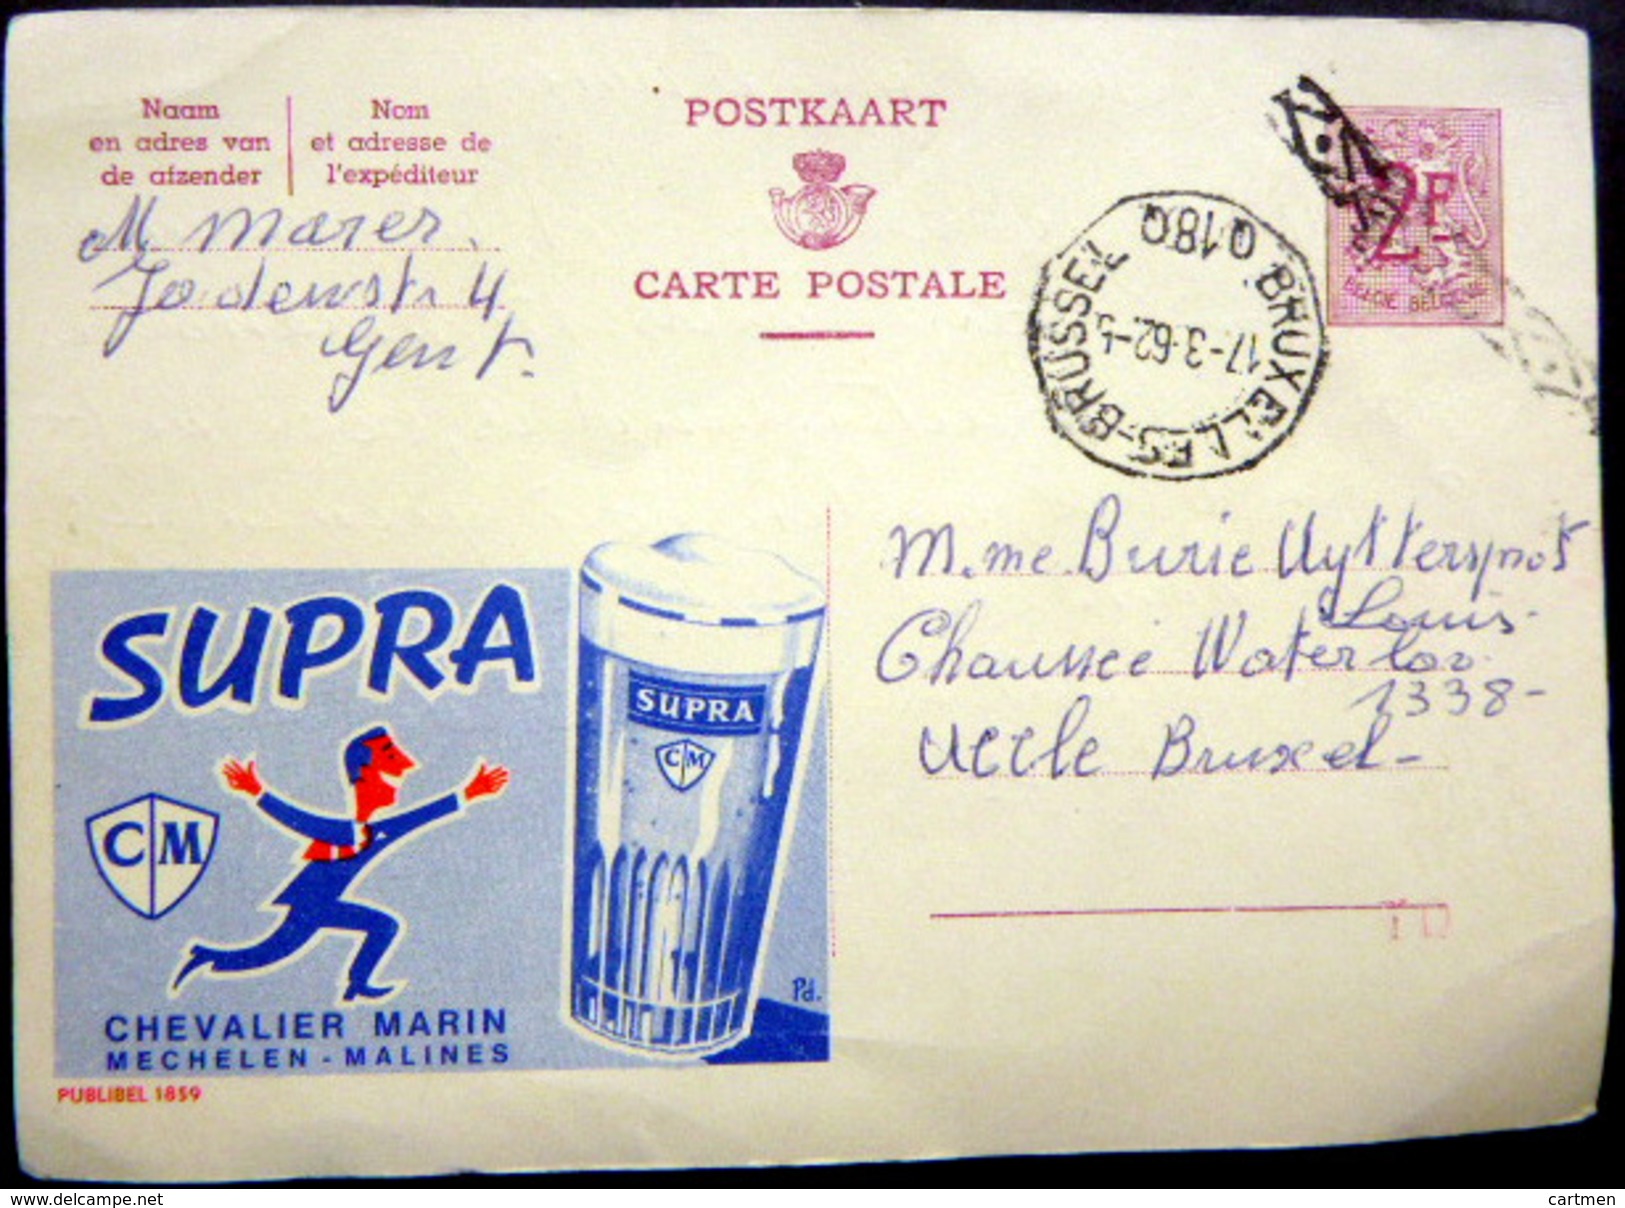 Naam
en adres van
de afzender
Nom
et adresse de
l'expéditeur
M Marer.
Jodenstr 4
Gent.
POSTKAART
CARTE POSTALE
2F
BELGIE BELGIQUE
Q18Q BRUXELLES-BRUSSEL
17-3-62
M.me Burie Uyttersprot
Louis.
Chaussée Waterloo.
1338-
Uccle Bruxel-
SUPRA
SUPRA
C M
C M
Pd.
CHEVALIER MARIN
MECHELEN - MALINES
PUBLIBEL 1859
www.delcampe.net
cartmen